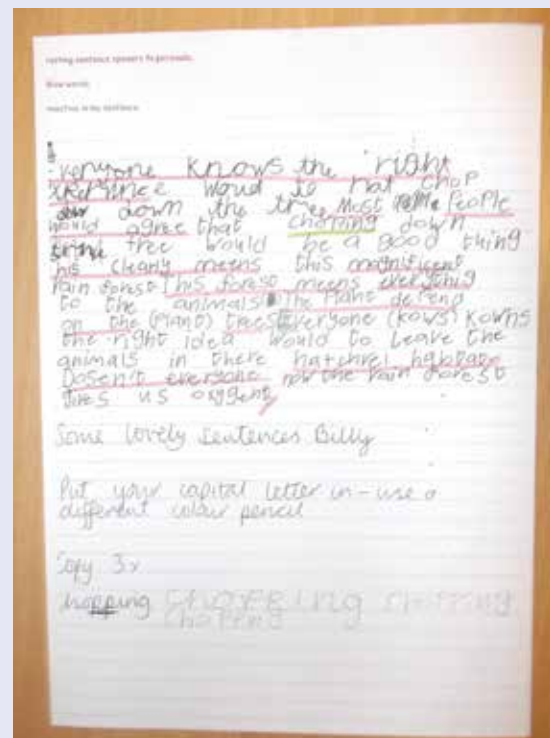 Everyone knows the right
would be not chop
down the tree Most people
would agree that choping down
tree would be a good thing
his clearly means this magnificent
rain forest This forest means everything
to the animals The Plant defend
on the (Plant) trees Everyone (kows) kowns
the right idea would to leave the
animals in there hatchrel habbitats
Dosen't everyone now the rain forest
gives us oxygent
Some lovely sentences Billy
Put your capital letter in - use a
different colour pencil
Copy 3x
chopping chopping chopping
chopping